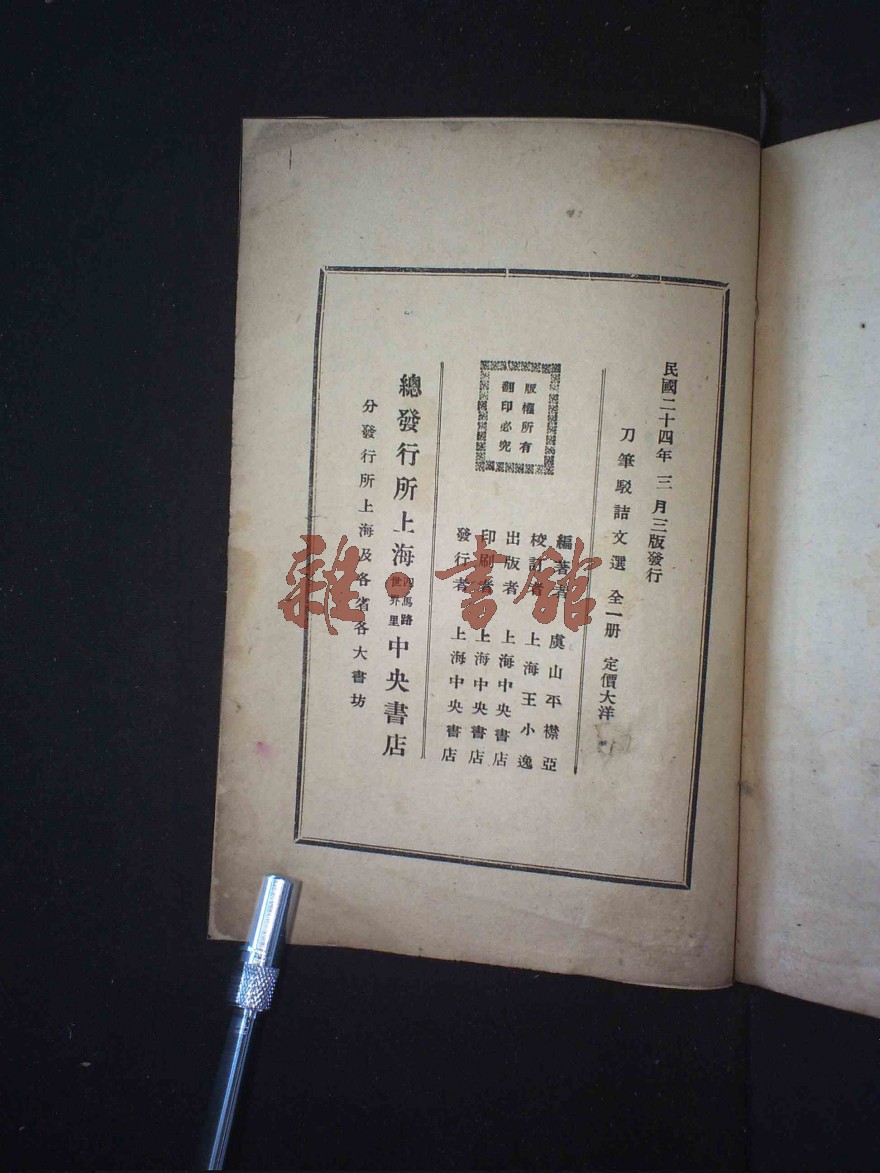 民國二十四年三月三版發行
刀筆駁詰文選 全一册 定價大洋
版權所有
翻印必究
編著者 虞山平襟亞
校訂者 上海王小逸
出版者 上海中央書店
印刷者 上海中央書店
發行者 上海中央書店
總發行所上海四馬路世界里中央書店
分發行所上海及各省各大書坊
雜·書館